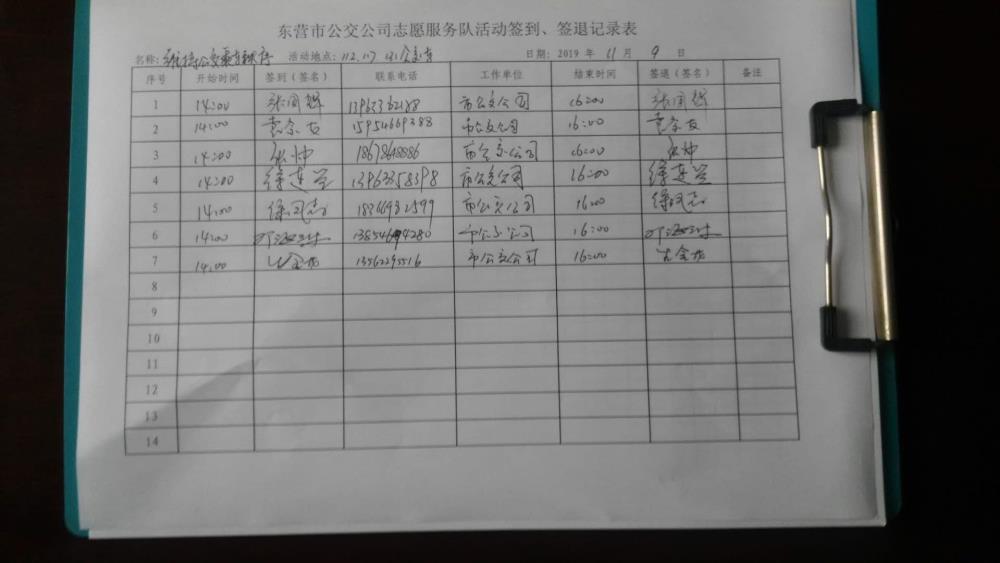 东营市公交公司志愿服务队活动签到、签退记录表
名称: 维持公交乘车秩序 活动地点: 112.117 日期: 2019 年 11 月 9 日
序号 开始时间 签到(签名) 联系电话 工作单位 结束时间 签退(签名) 备注
1 14:00 张国辉 13963362188 市公交公司 16:00 张国辉
2 14:00 15954669388 市公交公司 16:00
3 14:00 张坤 市公交公司 16:00 张坤
4 14:00 徐建兰 13963358398 市公交公司 16:00 徐建兰
5 14:00 徐凤志 市公交公司 16:00 徐凤志
6 14:00 市公交公司 16:00
7 14:00 13562295516 市公交公司 16:00
8
9
10
11
12
13
14